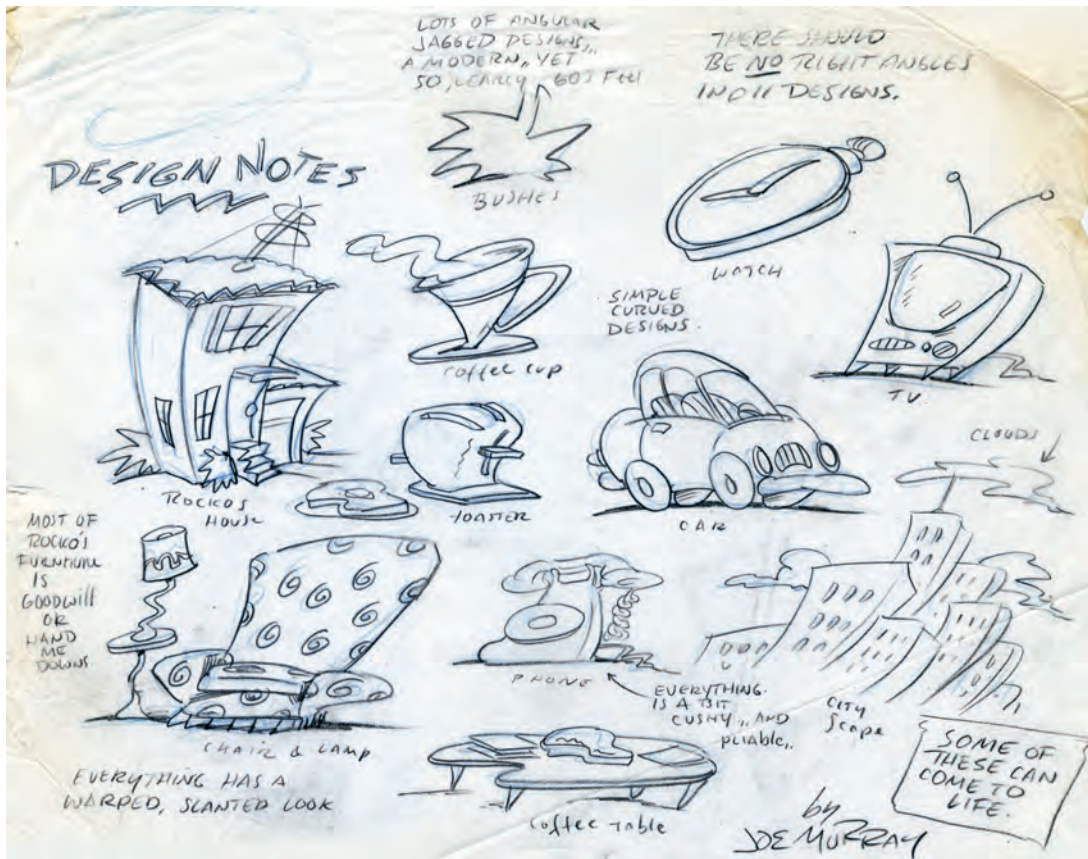 LOTS OF ANGULAR
JAGGED DESIGNS,,
A MODERN,, YET
60'S Feel
THERE SHOULD
BE NO RIGHT ANGLES
IN DESIGNS.
DESIGN NOTES
BUSHES
WATCH
SIMPLE
CURVED
DESIGNS.
coffee cup
T.V.
CLOUDS
ROCKO'S
HOUSE
TOASTER
CAR
MOST OF
ROCKO'S
FURNITURE
IS
GOODWILL
OR
HAND
ME
DOWNS
PHONE
EVERYTHING
IS A BIT
CUSHY,, AND
pliable,,
CITY
Scape
CHAIR & LAMP
EVERYTHING HAS A
WARPED, SLANTED LOOK
Coffee Table
SOME OF
THESE CAN
COME TO
LIFE.
by
JOE MURRAY